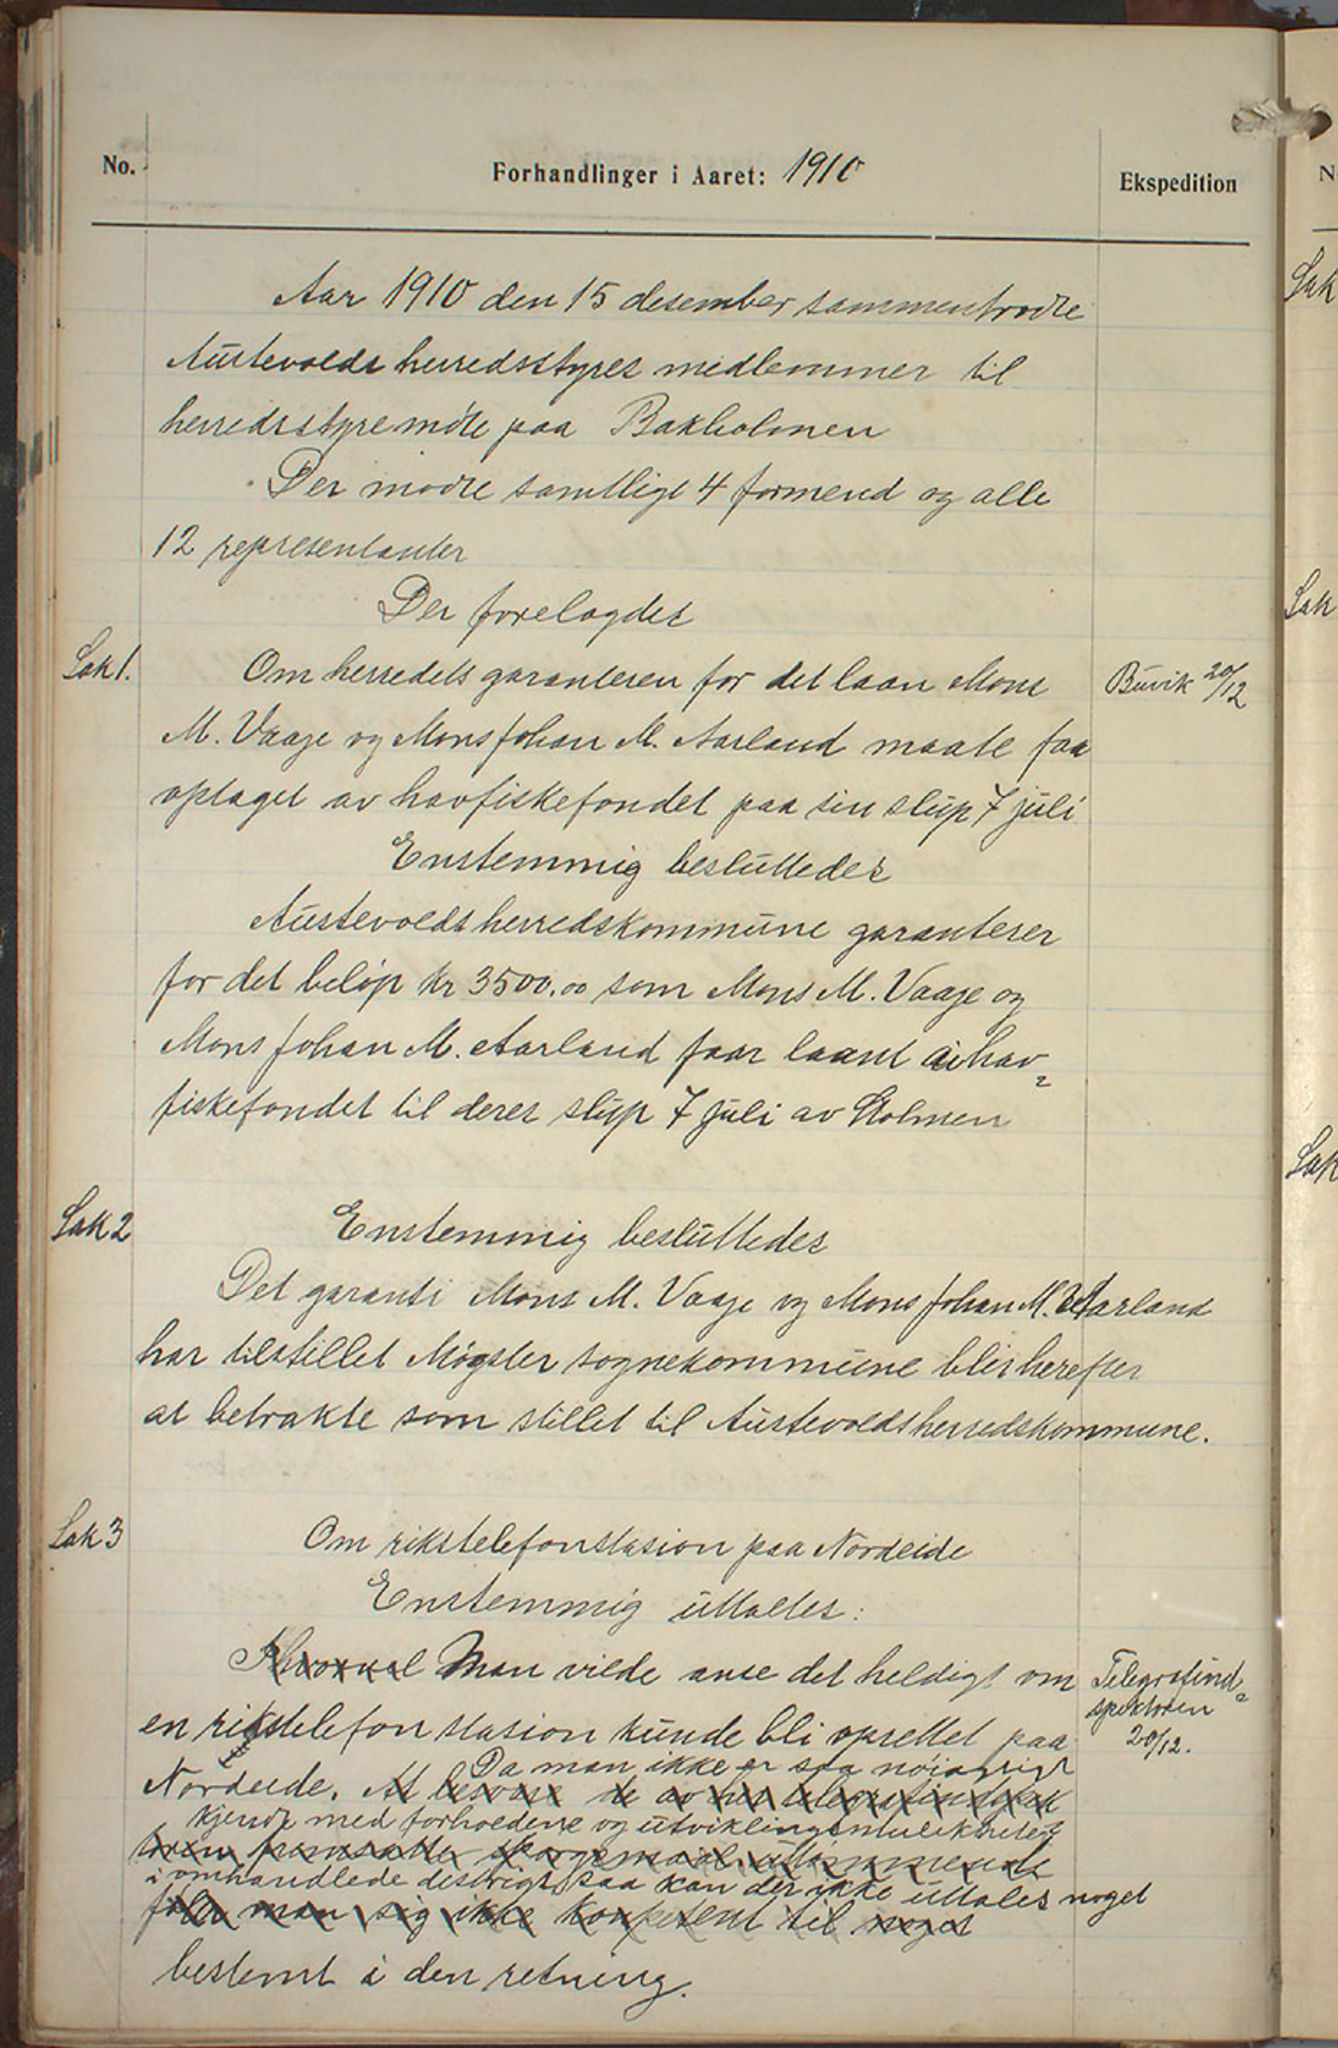 No.
Forhandlinger i Aaret: 1910
Ekspedition
Aar 1910 den 15 desember sammentrodte
Austevolds herredsstyres medlemmer til
herredsstyremöte paa Bakholmen
Der mödte samtlige 4 formend og alle
12 representanter
Der forelagdes
Sak 1.
Om herredets garanteren for det laan Mons
Buvik 20/12
M. Vaage og Mons Johan M. Aarland maate faa
optaget av havfiskefondet paa sin slup 7 juli
Enstemmig besluttedes
Austevolds herredskommune garanterer
for det beløp kr 3500.00 som Mons M. Vaage og
Mons Johan M. Aarland faar laant av hav=
fiskefondet til deres slup 7 juli av Stolmen
Sak 2
Enstemmig besluttedes
Det garanti Mons M. Vaage og Mons Johan M. Aarland
har tilstillet Møgster sognekommune blir herefter
at betrakte som stillet til Austevolds herredskommune.
Sak 3
Om rikstelefonstasion paa Nordeide
Enstemmig uttaltes:
Man vilde anse det heldigt om
Telegrafind=
spektøren
20/12.
en rikstelefonstasion kunde bli oprettet paa
Da man ikke er saa nöiagtigt
Nordeide. At besvare de av her telegrafindspek
kjendt med forholdene og utviklingsmuligheter
tøren fremsatte spørgsmaal uttømmende
i omhandlede destrigt, saa kan der ikke uttales noget
føler man sig ikke kompetent til noget
bestemt i den retning.
Sak
Sak
Sak